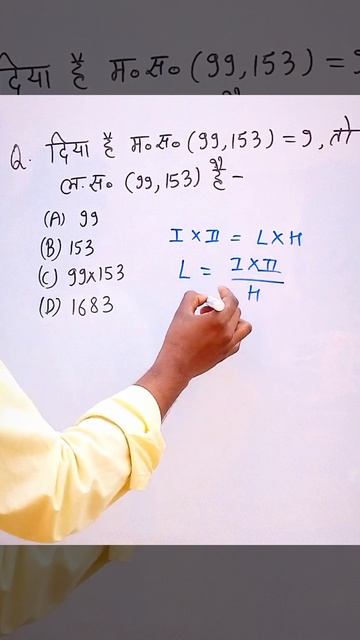 दिया है म०स०(99,153)=9
Q. दिया है म०स०(99,153)=9, तो
ल.स०(99,153) है-
(A) 99
(B) 153
(C) 99x153
(D) 1683
I X II = L X H
L = I X II
H